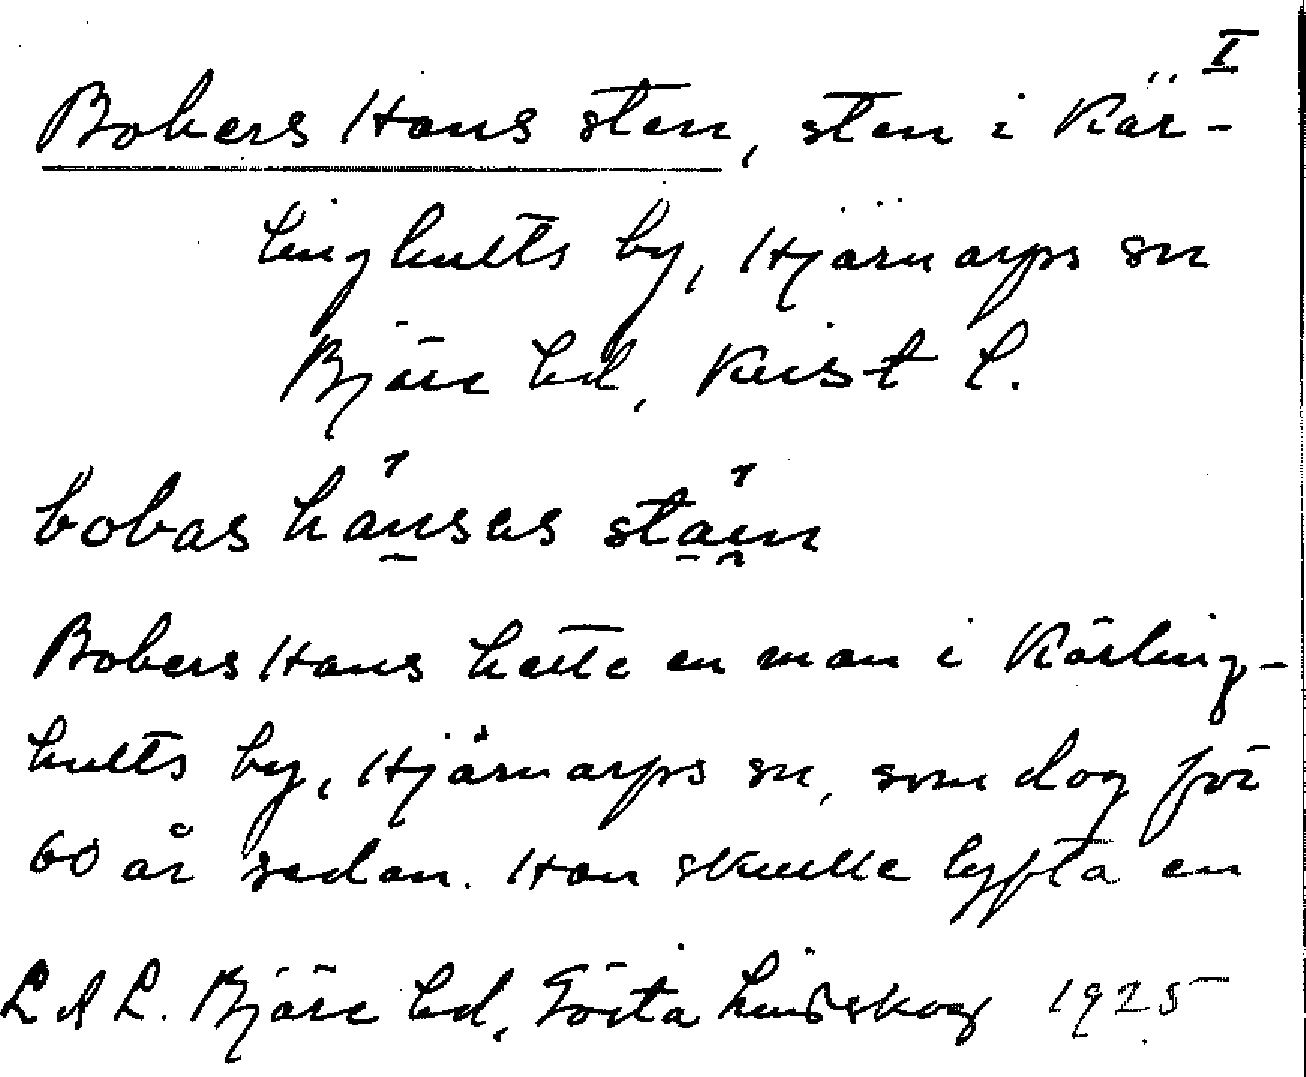 I
Bobers Hans sten, sten i Kär-
linghults by, Hjärnarps sn
Bjäre hd, Krist l.
bobas hansas stain
Bobers Hans hette en man i Kärling-
hults by, Hjärnarps sn, som dog för
60 år sedan. Han skulle lyfta en
L A L. Bjäre hd, Gösta Lindskog 1925